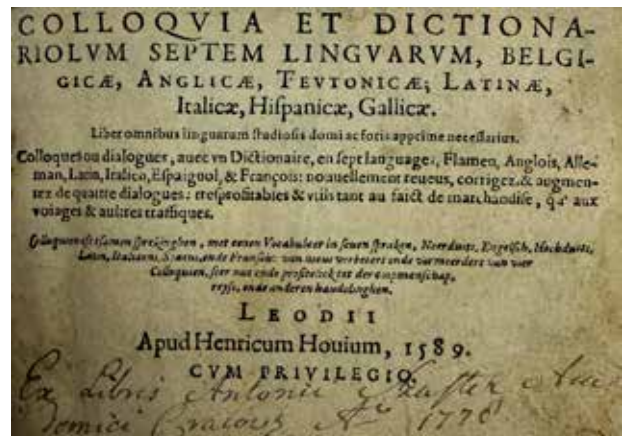 COLLOQVIA ET DICTIONA-
RIOLVM SEPTEM LINGVARVM, BELGI-
GICÆ, ANGLICÆ, TEVTONICÆ, LATINÆ,
Italicæ, Hiſpanicæ, Gallicæ.
Liber omnibus linguarum ſtudioſis domi ac foris apprime neceſſarius.
Colloques ou dialogues, auec vn Dictionaire, en ſept languages, Flamen, Anglois, Alle-
man, Latin, Italien, Eſpaignol, & François: nouuellement reueus, corrigez & augmen-
tez de quattre dialogues: tresprofitables & vtils tant au faict de marchandiſe, qu' aux
voiages & aultres traffiques.
Colloquien oft ſamen ſprekinghen, met eenen Vocabuleer in ſeuen ſpraken, Neerduits, Engelſch, Hochduits,
Latin, Italiaens, Spaens, ende Franſois: van nieus verbetert ende vermeerdert van vier
Colloquien, ſeer nut ende profitelick tot der coopmanſchap,
reyſe, ende anderen handelinghen.
LEODII
Apud Henricum Houium, 1589.
CVM PRIVILEGIO.
Ex Libris Antonii
177